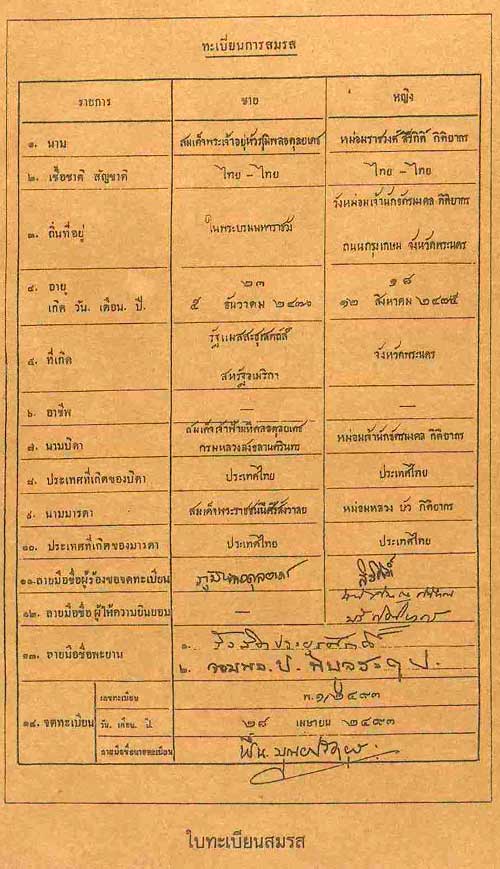 ทะเบียนการสมรส
รายการ ชาย หญิง
๑. นาม สมเด็จพระเจ้าอยู่หัวภูมิพลอดุลยเดช หม่อมราชวงศ์ สิริกิติ์ กิติยากร
๒. เชื้อชาติ สัญชาติ ไทย - ไทย ไทย - ไทย
วังหม่อมเจ้านักขัตรมงคล กิติยากร
๓. ถิ่นที่อยู่ ในพระบรมมหาราชวัง
ถนนกรุงเกษม จังหวัดพระนคร
๔. อายุ ๒๓ ๑๘
เกิด วัน. เดือน. ปี. ๕ ธันวาคม ๒๔๗๐ ๑๒ สิงหาคม ๒๔๗๕
รัฐแมสสะชูเสตต์ส์
๕. ที่เกิด จังหวัดพระนคร
สหรัฐอเมริกา
๖. อาชีพ —
สมเด็จเจ้าฟ้ามหิดลอดุลยเดช
๗. นามบิดา กรมหลวงสงขลานครินทร์ หม่อมเจ้านักขัตรมงคล กิติยากร
๘. ประเทศที่เกิดของบิดา ประเทศไทย ประเทศไทย
๙. นามมารดา สมเด็จพระราชชนนีศรีสังวาลย์ หม่อมหลวง บัว กิติยากร
๑๐. ประเทศที่เกิดของมารดา ประเทศไทย ประเทศไทย
๑๑. ลายมือชื่อผู้ร้องขอจดทะเบียน ภูมิพลอดุลยเดช สิริกิติ์
๑๒. ลายมือชื่อ ผู้ให้ความยินยอม —
๑๓. ลายมือชื่อพยาน ๑. รังสิตประยูรศักดิ์
๒. จอมพล ป. พิบูลสงคราม
เลขทะเบียน พ.๑/๒๔๙๓
๑๔. จดทะเบียน วัน. เดือน. ปี. ๒๘ เมษายน ๒๔๙๓
ลายมือชื่อนายทะเบียน ฟื้น บุณยปรัตยุธ
ใบทะเบียนสมรส